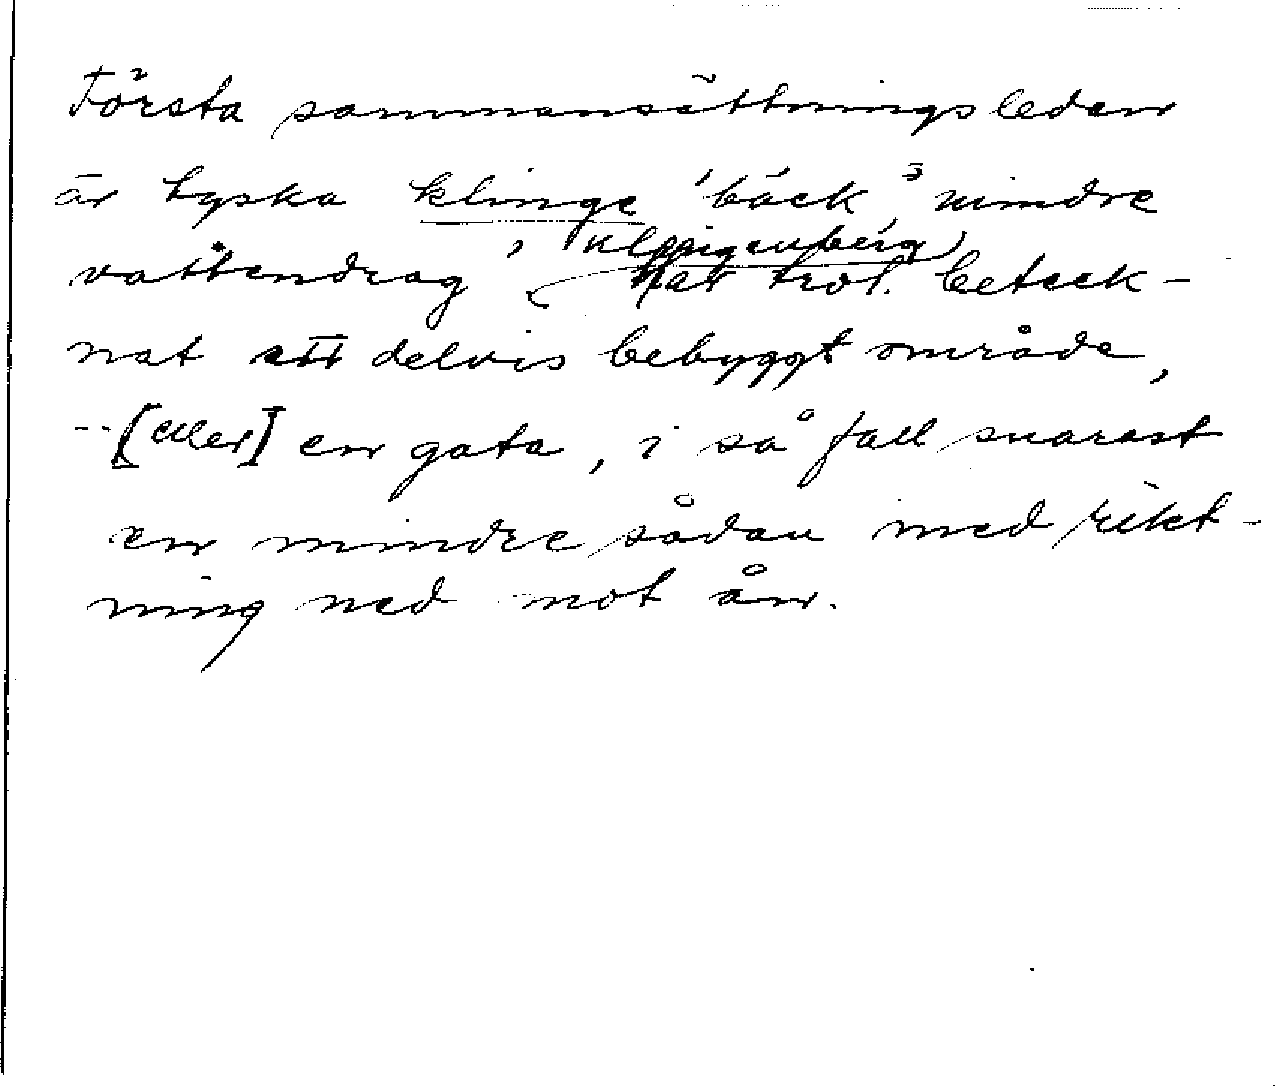 Första sammansättningsleden
är tyska klinge 'bäck, mindre
vattendrag', Klingenberg
har trol. beteck-
nat ett delvis bebyggt område,
--[eller] en gata, i så fall snarast
en mindre sådan med rikt-
ning ned mot ån.